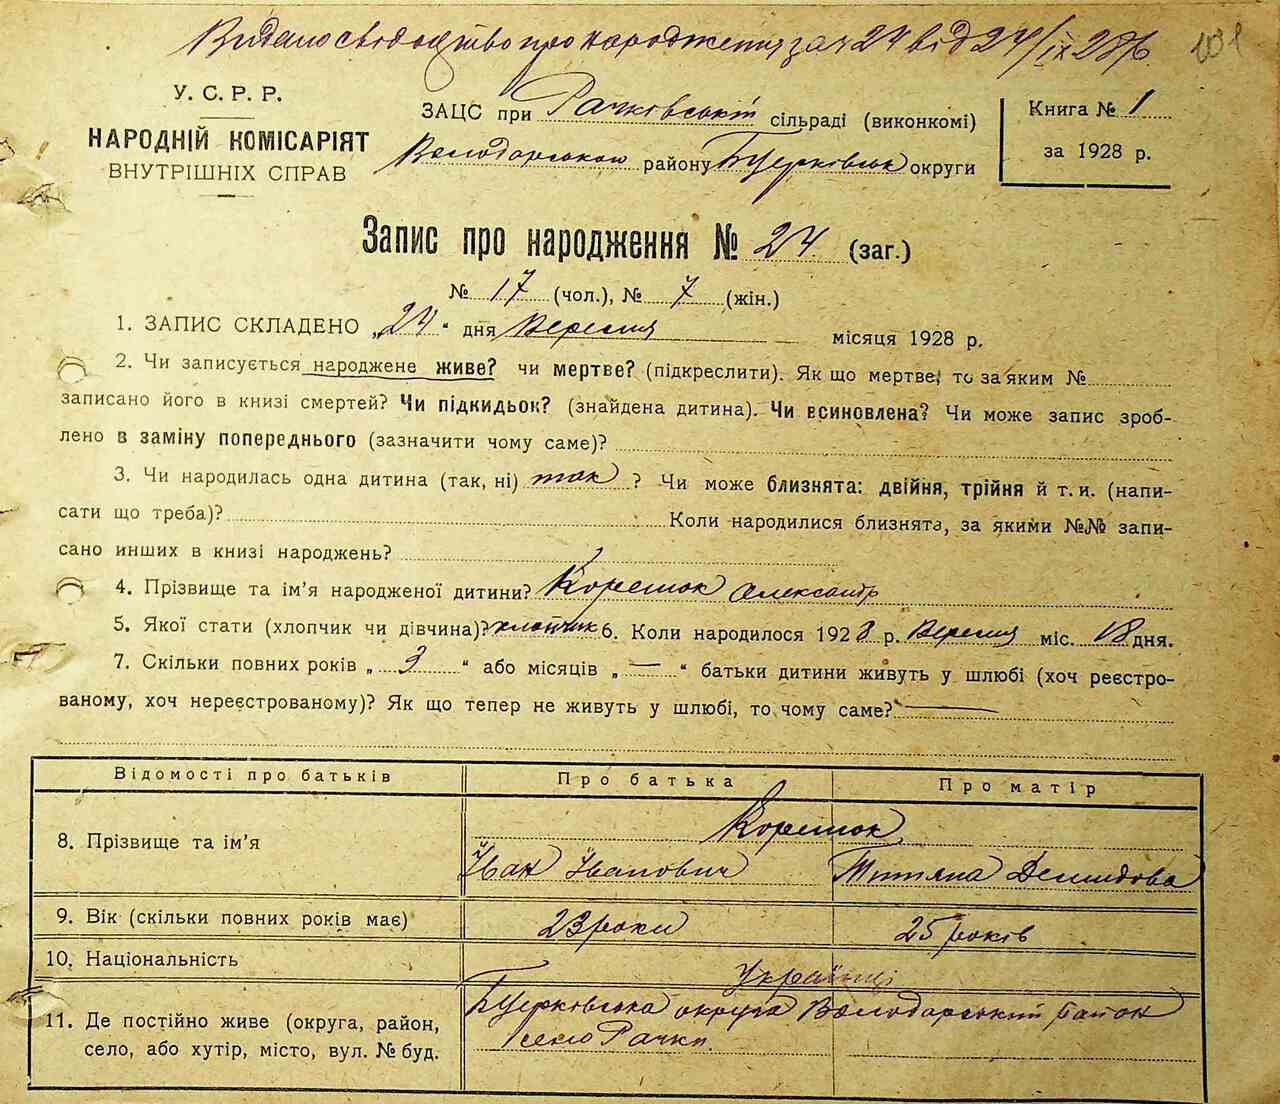 Видано свідоцтво про народження за № 24 від 24/IX 28 р.
101
У. С. Р. Р.
НАРОДНІЙ КОМІСАРІЯТ
ВНУТРІШНІХ СПРАВ
ЗАЦС при Рачківській сільраді (виконкомі)
Володарського району БЦерківськ округи
Книга № 1
за 1928 р.
Запис про народження № 24 (заг.)
№ 17 (чол.), № 7 (жін.)
1. ЗАПИС СКЛАДЕНО „24" дня Вересня місяця 1928 р.
2. Чи записується народжене живе? чи мертве? (підкреслити). Як що мертве, то за яким №
записано його в книзі смертей? Чи підкидьок? (знайдена дитина). Чи всиновлена? Чи може запис зроб-
лено в заміну попереднього (зазначити чому саме)?
3. Чи народилась одна дитина (так, ні) так ? Чи може близнята: двійня, трійня й т. и. (напи-
сати що треба)? Коли народилися близнята, за якими №№ запи-
сано инших в книзі народжень?
4. Прізвище та ім'я народженої дитини? Корешок Александр
5. Якої стати (хлопчик чи дівчина)? хлопчик 6. Коли народилося 1928 р. Вересня міс. 18 дня.
7. Скільки повних років „ 3 " або місяців „ — " батьки дитини живуть у шлюбі (хоч реєстро-
ваному, хоч нереєстрованому)? Як що тепер не живуть у шлюбі, то чому саме? —
Відомості про батьків Про батька Про матір
8. Прізвище та ім'я Корешок
Іван Іванович Титяна Демидова
9. Вік (скільки повних років має) 23 роки 25 років
10. Національність Українці
11. Де постійно живе (округа, район, БЦерківська округа Володарський район
село, або хутір, місто, вул. № буд. село Рачки